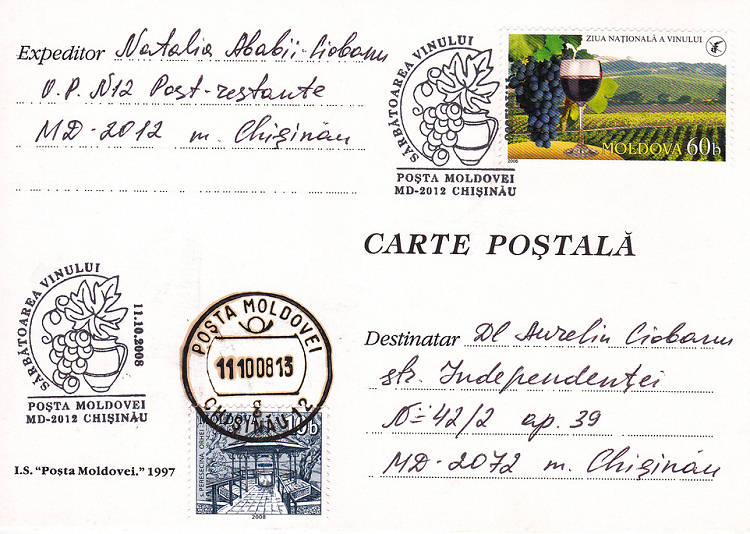 Expeditor Natalia Ababii-Ciobanu
O.P. N12 Post-restante
MD-2012 m. Chişinău
SĂRBĂTOAREA VINULUI
POŞTA MOLDOVEI
MD-2012 CHIŞINĂU
ZIUA NAŢIONALĂ A VINULUI
MOLDOVA 60b
2006
CARTE POŞTALĂ
SĂRBĂTOAREA VINULUI
11.10.2008
POŞTA MOLDOVEI
MD-2012 CHIŞINĂU
POŞTA MOLDOVEI
11 10 08 13
g
CHIŞINĂU 12
Destinatar Dl Aureliu Ciobanu
str. Independenţei
N=42/2 ap. 39
MD-2072 m. Chişinău
I.S. "Poşta Moldovei." 1997
MOLDOVA 10b
s. PERESECINA, ORHEI
2008